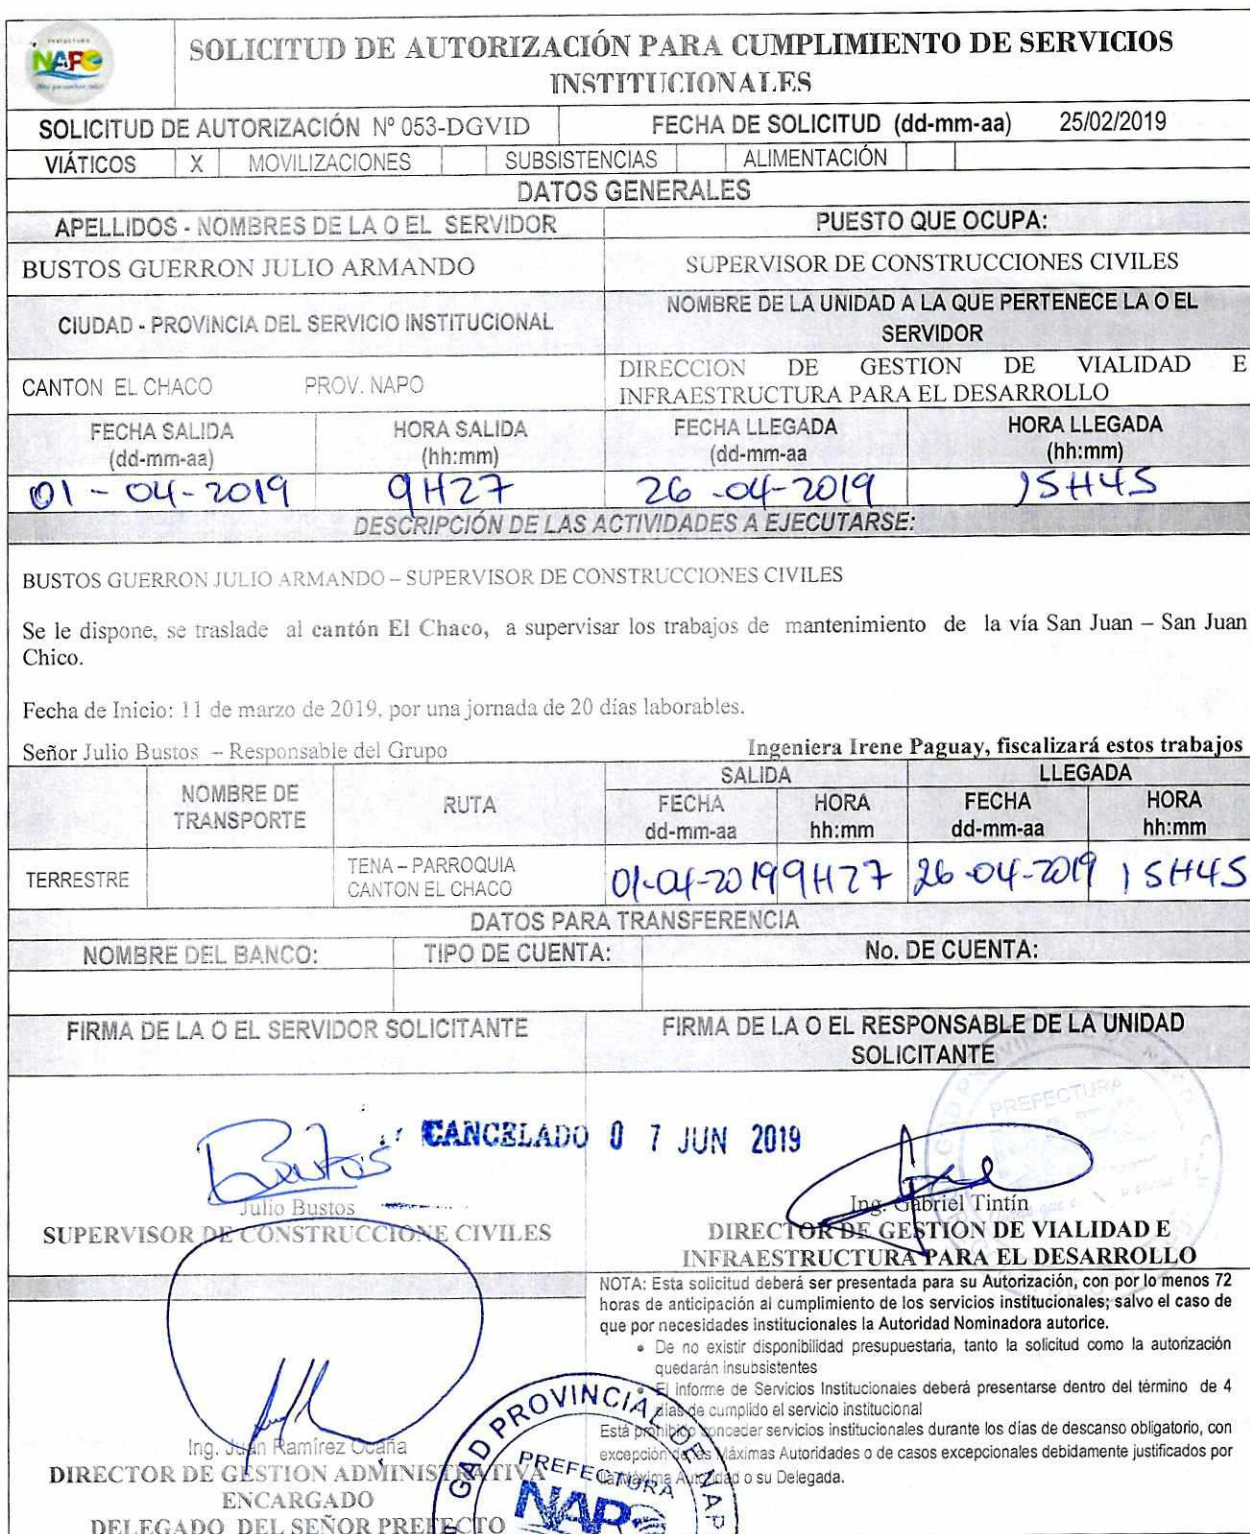 PREFECTURA
NAPO
SOLICITUD DE AUTORIZACIÓN PARA CUMPLIMIENTO DE SERVICIOS
INSTITUCIONALES
SOLICITUD DE AUTORIZACIÓN Nº 053-DGVID FECHA DE SOLICITUD (dd-mm-aa) 25/02/2019
VIÁTICOS X MOVILIZACIONES SUBSISTENCIAS ALIMENTACIÓN
DATOS GENERALES
APELLIDOS - NOMBRES DE LA O EL SERVIDOR PUESTO QUE OCUPA:
BUSTOS GUERRON JULIO ARMANDO SUPERVISOR DE CONSTRUCCIONES CIVILES
CIUDAD - PROVINCIA DEL SERVICIO INSTITUCIONAL NOMBRE DE LA UNIDAD A LA QUE PERTENECE LA O EL
SERVIDOR
CANTON EL CHACO PROV. NAPO DIRECCION DE GESTION DE VIALIDAD E
INFRAESTRUCTURA PARA EL DESARROLLO
FECHA SALIDA HORA SALIDA FECHA LLEGADA HORA LLEGADA
(dd-mm-aa) (hh:mm) (dd-mm-aa (hh:mm)
01-04-2019 9H27 26-04-2019 15H45
DESCRIPCIÓN DE LAS ACTIVIDADES A EJECUTARSE:
BUSTOS GUERRON JULIO ARMANDO – SUPERVISOR DE CONSTRUCCIONES CIVILES
Se le dispone, se traslade al cantón El Chaco, a supervisar los trabajos de mantenimiento de la vía San Juan – San Juan
Chico.
Fecha de Inicio: 11 de marzo de 2019, por una jornada de 20 días laborables.
Señor Julio Bustos – Responsable del Grupo Ingeniera Irene Paguay, fiscalizará estos trabajos
SALIDA LLEGADA
NOMBRE DE TRANSPORTE RUTA FECHA HORA FECHA HORA
dd-mm-aa hh:mm dd-mm-aa hh:mm
TERRESTRE TENA – PARROQUIA
CANTON EL CHACO 01-04-2019 9H27 26-04-2019 15H45
DATOS PARA TRANSFERENCIA
NOMBRE DEL BANCO: TIPO DE CUENTA: No. DE CUENTA:
FIRMA DE LA O EL SERVIDOR SOLICITANTE FIRMA DE LA O EL RESPONSABLE DE LA UNIDAD
SOLICITANTE
PREFECTURA
CANCELADO 0 7 JUN 2019
Bustos
Julio Bustos
SUPERVISOR DE CONSTRUCCIONE CIVILES
Ing. Gabriel Tintín
DIRECTOR DE GESTIÓN DE VIALIDAD E
INFRAESTRUCTURA PARA EL DESARROLLO
NOTA: Esta solicitud deberá ser presentada para su Autorización, con por lo menos 72
horas de anticipación al cumplimiento de los servicios institucionales; salvo el caso de
que por necesidades institucionales la Autoridad Nominadora autorice.
• De no existir disponibilidad presupuestaria, tanto la solicitud como la autorización
quedarán insubsistentes
• El informe de Servicios Institucionales deberá presentarse dentro del término de 4
días de cumplido el servicio institucional
Está prohibido conceder servicios institucionales durante los días de descanso obligatorio, con
excepción de las Máximas Autoridades o de casos excepcionales debidamente justificados por
la Máxima Autoridad o su Delegada.
Ing. Juan Ramírez Ocaña
DIRECTOR DE GESTION ADMINISTRATIVA
ENCARGADO
DELEGADO DEL SEÑOR PREFECTO
GAD PROVINCIAL DE NAP
PREFECTURA
NAPO